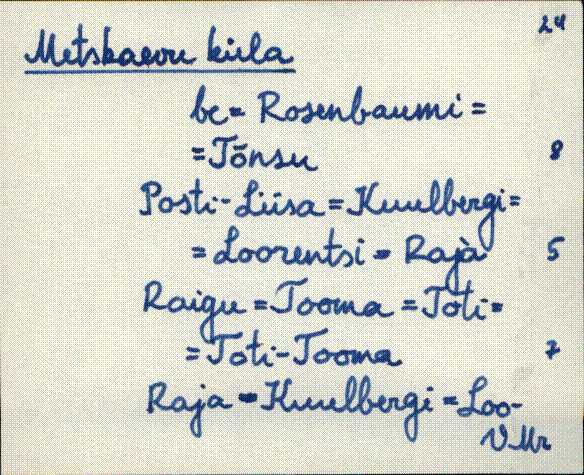 24
Metskaevu küla
be = Rosenbaumi =
= Tõnsu 8
Posti-Liisa = Kuulbergi =
= Loorentsi = Raja 5
Raigu = Tooma = Toti =
= Toti-Tooma 7
Raja = Kuulbergi = Loo-
VMr